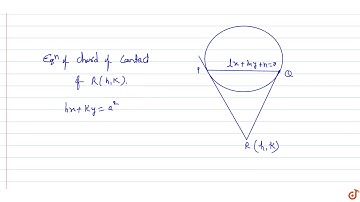 Eqⁿ of chord of contact
of R(h,K).
hx+Ky=a²
lx+my+n=0
P
Q
R (h,K)